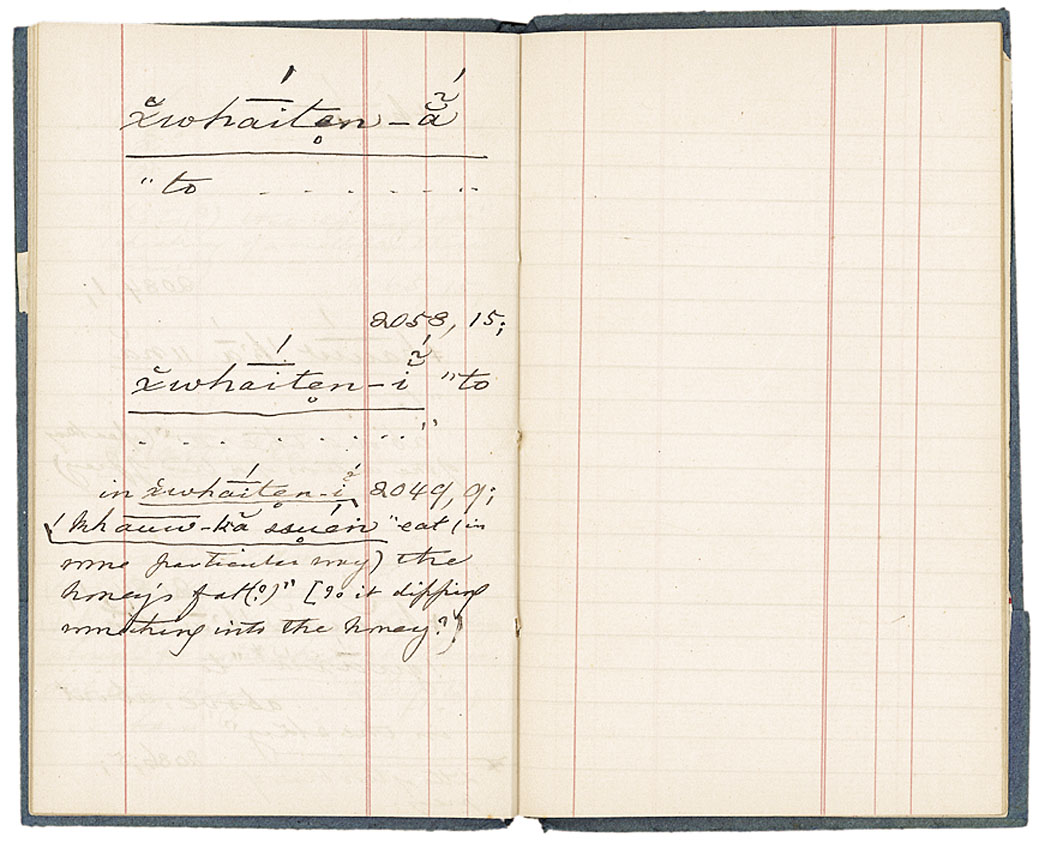 x̌whāítẹn-ã́
"to . . . . . . . .
2058, 15;
x̌whāítẹn-ĩ́ "to
. . . . . . . . ."
in x̌whāítẹn-ĩ́ 2049, 9;
!kh̄auw-kă ssuẹ́n "eat (in
some particular way) the
honey's fat(?)" [Is it dipping
something into the honey?]